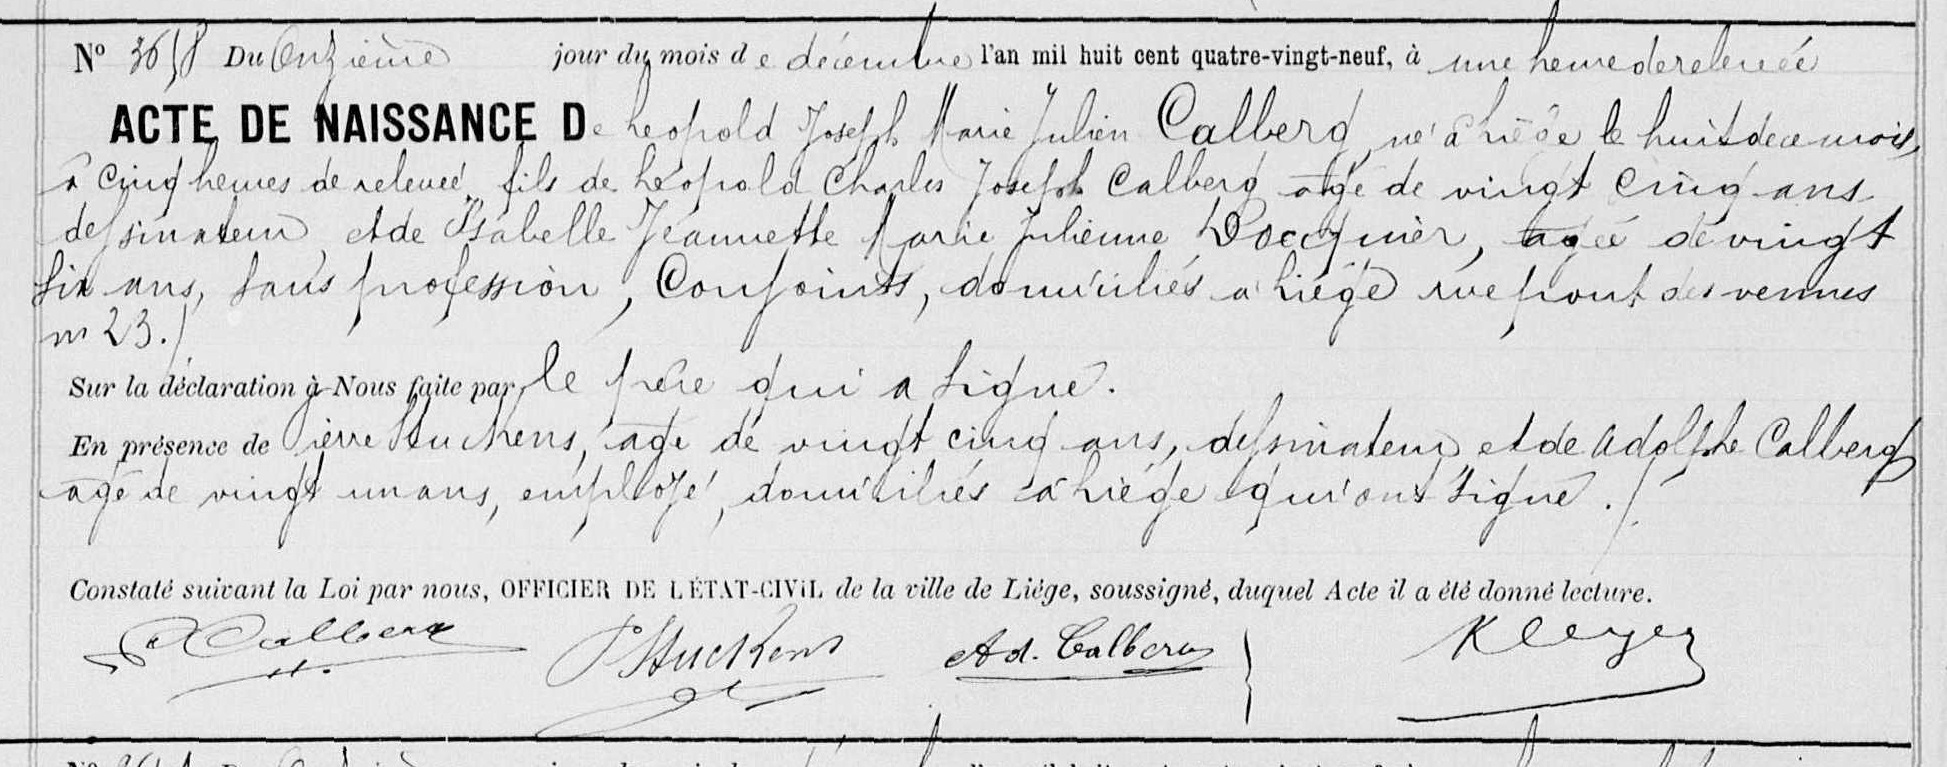 N° 3658 Du Onzième jour du mois de décembre l'an mil huit cent quatre-vingt-neuf, à une heure de relevée
ACTE DE NAISSANCE De Léopold Joseph Marie Julien Calberg, né à Liége le huit de ce mois,
à cinq heures de relevée, fils de Léopold Charles Joseph Calberg agé de vingt cinq ans
dessinateur, et de Isabelle Jeannette Marie Julienne Docquier, agée de vingt
six ans, sans profession, Conjoints, domiciliés à Liége rue front des vennes
n° 23./
Sur la déclaration à Nous faite par le père qui a signé.
En présence de Pierre Stuckens, agé de vingt cinq ans, dessinateur et de Adolphe Calberg
agé de vingt un ans, employé, domiciliés à Liége qui ont signé ./
Constaté suivant la Loi par nous, OFFICIER DE L'ÉTAT-CIViL de la ville de Liége, soussigné, duquel Acte il a été donné lecture.
Calberg P Stuckens Ad. Calberg Kleyer